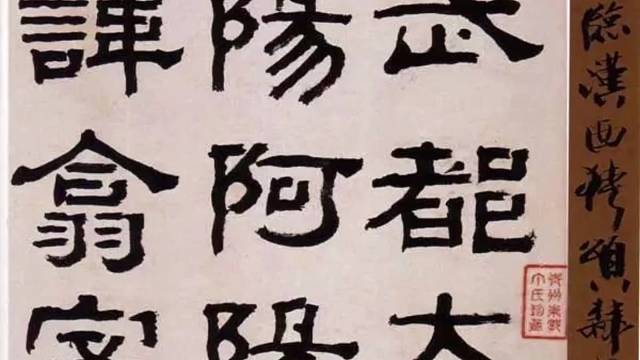 臨漢西狹頌隸
武都太
陽阿陽
諱翕字